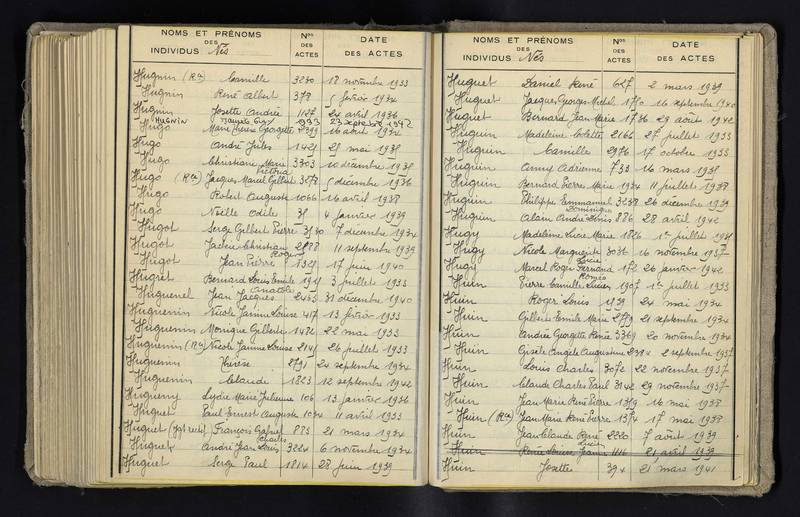 NOMS ET PRÉNOMS
DES
INDIVIDUS Nés
Nos
DES
ACTES
DATE
DES ACTES
Hugnin (Rn) Camille 3230 18 novembre 1933
Hugnin René Albert 378 5 février 1934
Hugnin Josette Andrée 1127 24 avril 1936
Hugo Marie Thérèse Georgette 16 avril 1934
Hugo André Jules 1425 28 mai 1938
Hugo Christiane Marie 3303 10 décembre 1938
Victoria
Hugo (Rn) Jacques Marcel Gilbert 3278 5 décembre 1936
Hugo Robert Auguste 1066 16 avril 1938
Hugo Noëlle Odile 31 4 janvier 1939
Hugot Serge Gilbert Pierre 3130 7 décembre 1934
Hugot Jackie Christian 2888 11 septembre 1939
Roger
Hugot Jean Pierre 1325 17 juin 1940
Hugret Bernard Louis Emile 1925 3 juillet 1933
Anatole
Huguenel Jean Jacques 2463 31 décembre 1940
Huguenin Nicole Janine Louise 417 13 février 1933
Huguenin Monique Gilberte 1472 22 mai 1933
Huguenin (Rn) Nicole Janine Louise 2141 26 juillet 1933
Huguenin Thérèse 2791 24 septembre 1934
Huguenin Claude 1823 12 septembre 1942
Hugueny Lydie Marie Julienne 106 13 janvier 1936
Huguet Paul Ernest Auguste 1034 11 avril 1933
Huguet (Jgt rect.) François Gabriel 883 21 mars 1934
Charles
Huguet André Jean Louis 3224 6 novembre 1934
Huguet Serge Paul 1814 28 juin 1939
NOMS ET PRÉNOMS
DES
INDIVIDUS Nés
Nos
DES
ACTES
DATE
DES ACTES
Huguet Daniel René 627 2 mars 1939
Huguet Jacques Georges Michel 1710 16 septembre 1940
Huguet Bernard Jean Marie 1736 29 août 1942
Huguin Madeleine Colette 2166 27 juillet 1933
Huguin Camille 2976 17 octobre 1933
Huguin Anny Adrienne 733 16 mars 1938
Huguin Bernard Pierre Marie 1934 11 juillet 1938
Huguin Philippe Emmanuel 3238 26 décembre 1939
Dominique
Huguin Alain André Louis 886 28 avril 1942
Hugy Madeleine Lucie Marie 1826 1er juillet 1931
Hugy Nicole Marguerite 3036 16 novembre 1937
Lucie
Hugy Marcel Roger Fernand 172 26 janvier 1942
Huin Pierre Camille Lucien 1907 1er juillet 1933
Huin Roger Louis 1539 24 mai 1934
Huin Gilbert Emile Marie 2759 21 septembre 1934
Huin Andrée Georgette Renée 3369 20 novembre 1934
Huin Gisèle Angèle Augustine 2384 2 septembre 1937
Huin Louis Charles 3072 22 novembre 1937
Huin Claude Charles Paul 3142 29 novembre 1937
Huin Jean Marie René Pierre 1319 16 mai 1938
Huin (Rn) Jean Marie René Pierre 1374 17 mai 1938
Huin Jean Claude René 2220 7 avril 1939
Lucie
Huin Renée Louise Jeanne 1116 21 avril 1939
Huin Josette 394 21 mars 1941